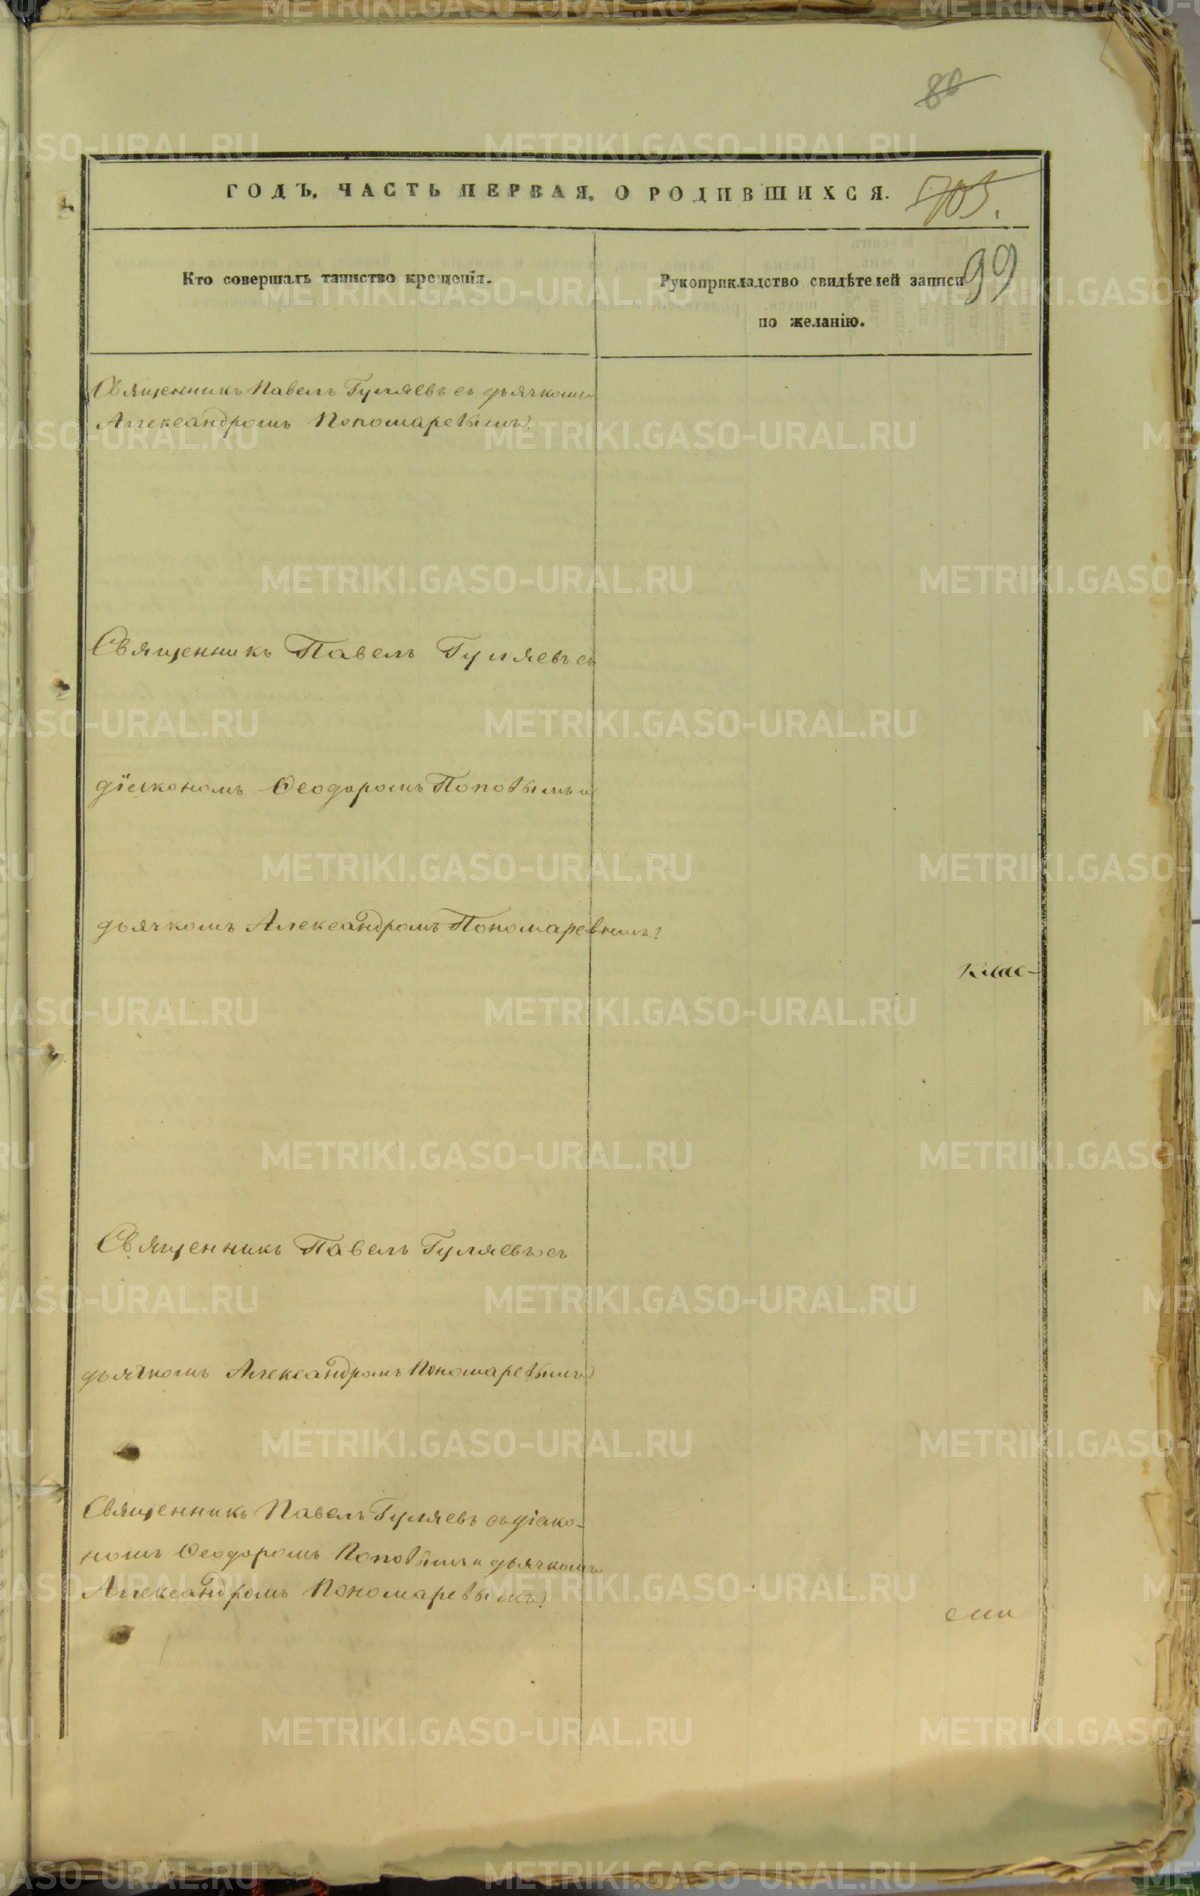 80
ГОДЪ. ЧАСТЬ ПЕРВАЯ, О РОДИВШИХСЯ. 705.
99
Кто совершалъ таинство крещенія.
Рукоприкладство свидѣтелей записи
по желанію.
Священникъ Павелъ Гуляевъ съ дьячкомъ
Александромъ Пономаревымъ.
Священникъ Павелъ Гуляевъ съ
діакономъ Ѳеодоромъ Поповымъ и
дьячкомъ Александромъ Пономаревымъ.
Священникъ Павелъ Гуляевъ съ
дьячкомъ Александромъ Пономаревымъ
Священникъ Павелъ Гуляевъ съ діако-
номъ Ѳеодоромъ Поповымъ и дьячкомъ
Александромъ Пономаревымъ.
METRIKI.GASO-URAL.RU